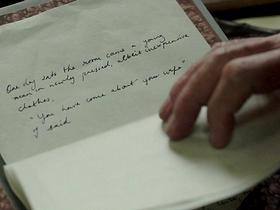 One day into the room came a young
man in newly pressed, albeit inexpensive
clothes.
"You have come about your wife"
I said